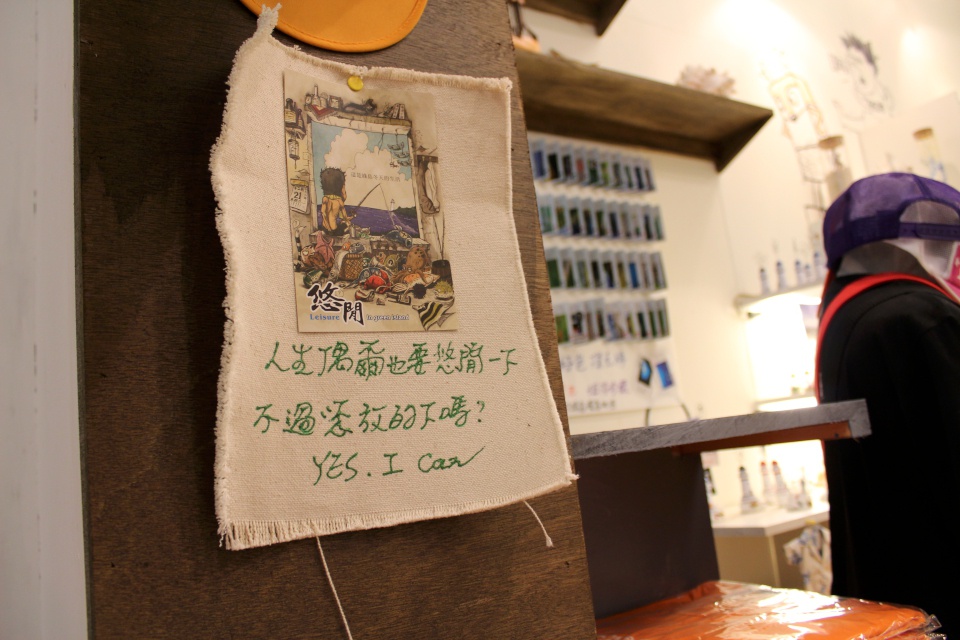 21
悠閒
Leisure In green island
人生偶爾也要悠閒一下
不過您放的下嗎?
YES. I Can